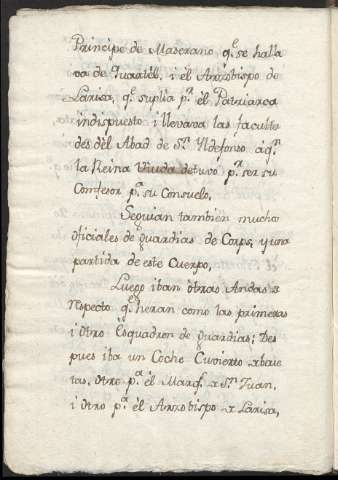 Principe de Maserano q.e se halla
va de Quartél, i él Arzobispo de
Larisa, q.e suplia p.r él Patriarca
indispuesto i llevava las faculta
des dél Abad de S.n Yldefonso áq.n
la Reina Viuda detuvo p.r ser su
Comfesor p.a su Consuelo,
Seguian tambien muchos
oficiales de guardias de Corps, y una
partida de este Cuerpo,
Luego iban ótras Andas de
respecto q.e heran como las primeras
i ótro Esquadron de guardias; Des
pues iba un Coche Cuvierto de baie
tas, ótro p.a él Marq.s de S.n Juan,
i ótro p.a él Arzobispo de Larisa,